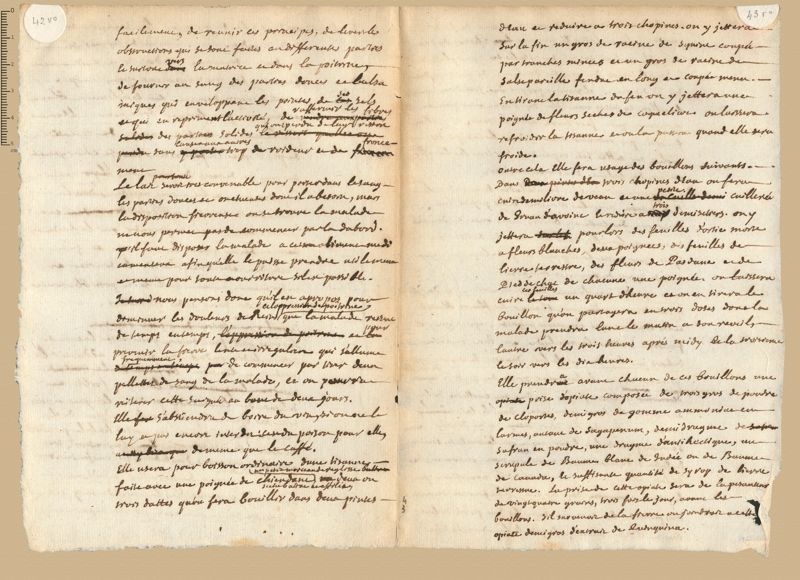 42 vo
facilement, de reunir ces principes, de lever les
obstructions qui se sont faites en differentes parties
la matrice et dans la poitrine,
de fournir au sang des parties douces et balsa
miques qui enveloppent les pointes de ses sels
et qui en repriment l'accreté, de raffermir les fibres
des parties solides
sans trop de roideur et de fronce-
ment
Le lait seroit tres convenable pour porter dans le sang
les parties douces et onctueuses dont il a besoin, mais
la disposition fievreuse ou se trouve la malade
ne nous permet pas de commencer par la dabord.
il faut disposer la malade a ce
afin quelle le puisse prendre utilement
et meme pour toute nourriture sil est possible.
nous pensons donc quil est apropos pour
et l'oppression de poitrine
diminuer les douleurs de que la malade resent
de temps en temps, et pour
prevenir la fievre lente et irreguliere qui s'allume
frequemment, de commencer par tirer deux
pallettes de sang de la malade, et on pourra
reiterer cette au bout de deux jours.
Elle s'abstiendra de boire du vin, si on ne le
luy a pas encore interdit, cest un poison pour elle,
de meme que le caffé.
Elle usera pour boisson ordinaire dune tisanne
faite avec une poignée de chiendent, deux ou
trois dattes qu'on fera bouillir dans deux pintes
43 ro
d'eau et reduire a trois chopines. on y jettera
sur la fin un gros de racine de squine coupée
par tranches minces et un gros de racine de
salsepareille fendue en long et coupée menu.
En tirant la tisanne du feu on y jettera une
poignée de fleurs seches de coquelicot on laissera
refroidir la tisanne et on la passera quand elle sera
froide.
outre cela Elle fera usage des bouillons suivants.
Dans trois chopines d'eau on fera
cuire demi livre de veau et une petite cuillerée
de gruau d'avoine et reduire a trois demisetiers. on y
jettera pour lors des feuilles d'ortie morte
a fleurs blanches, deux poignées, des feuilles de
lierre terrestre, des fleurs de Pasdane et de
Pied de chat de chacune une poignée. on laissera
cuire ces feuilles un quart d'heure et on en tirera le
bouillon qu'on partagera en trois doses dont la
malade prendra l'une le matin a son reveil,
l'autre vers les trois heures aprés midy & la troisieme
le soir vers les dix heures.
Elle prendra avant chacun de ces bouillons une
prise d'opiate composée de trois gros de poudre
de cloportes, demi gros de gomme ammoniac en
larmes, autant de sagapenum, demi dragme de
safran en poudre, une dragme d'antihectique, un
scrupule de Baume blanc de Judée ou de Baume
de Canada, et suffisante quantité de syrop de lierre
terrestre. La prise de cette opiate sera de la pesanteur
de vingt quatre grains, trois fois le jour, avant les
bouillons. s'il survenoit de la fievre on joindroit a cette
opiate demi gros d'extrait de quinquina.